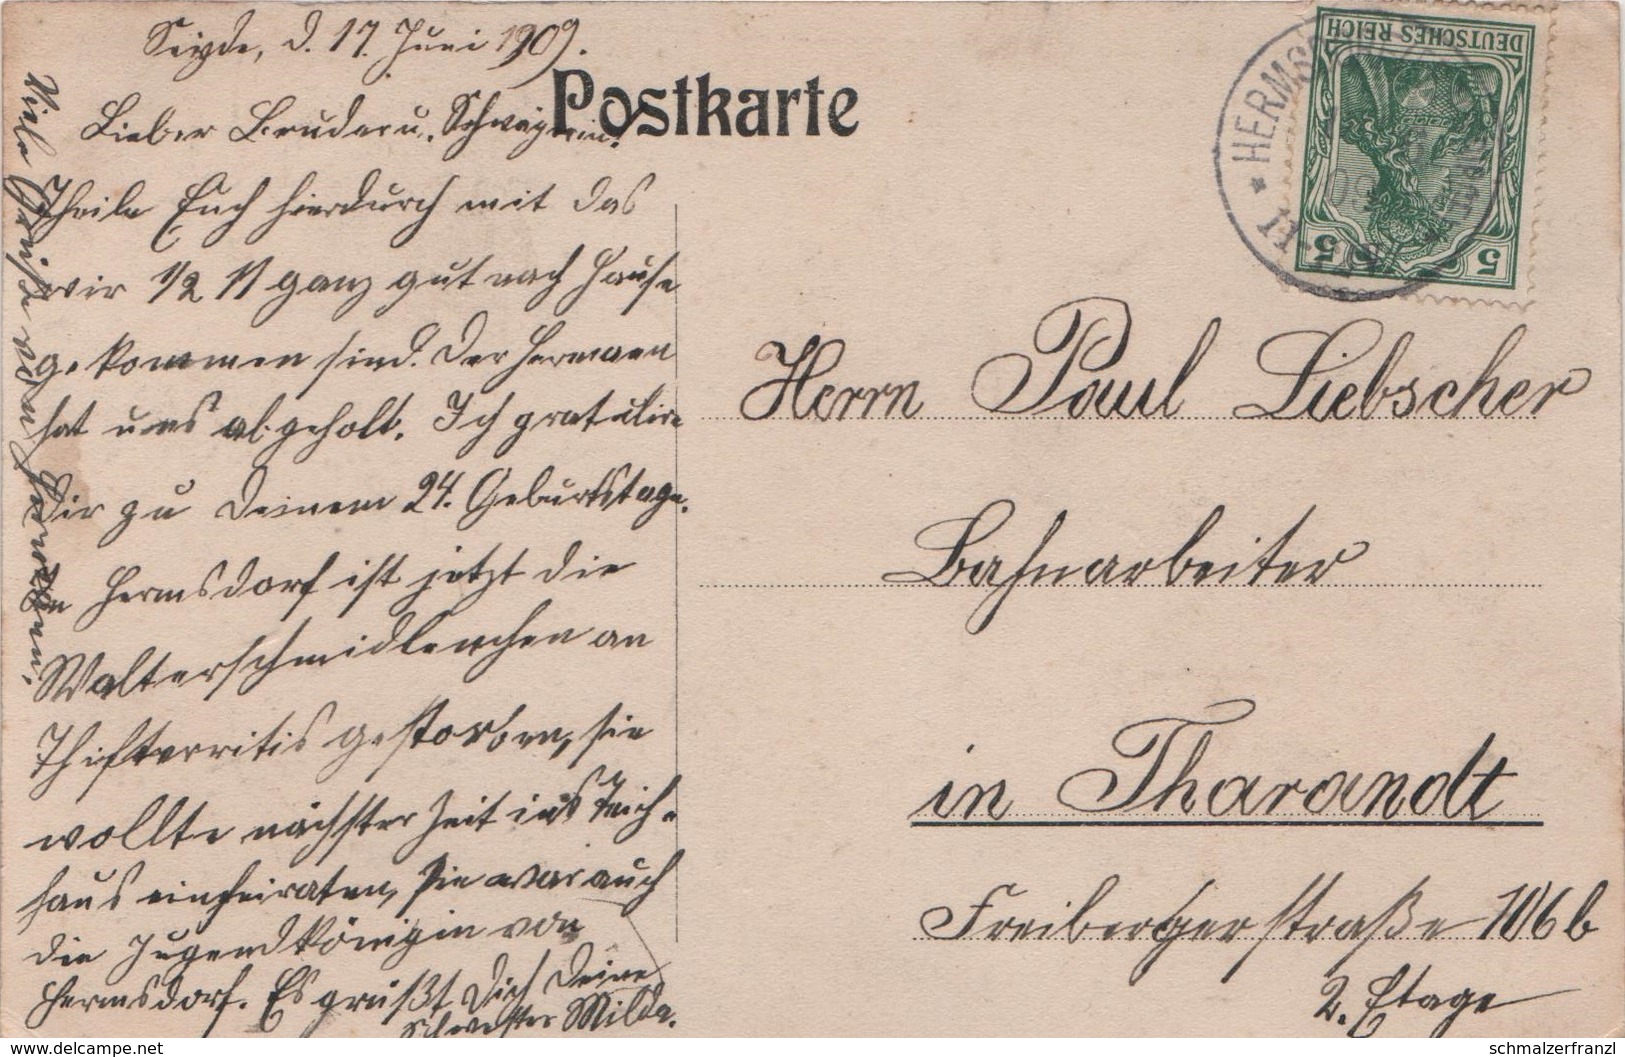 Seyde, d. 17. Juni 1909.
Postkarte
Lieber Bruder u. Schwägerin!
Theile Euch hierdurch mit das
wir 1/2 11 ganz gut nach Hause
gekommen sind. Der Hermann
hat uns abgeholt. Ich gratulire
Dir zu Deinem 24. Geburtstage.
In Hermsdorf ist jetzt die
Walterschmidlenchen an
Thifterritis gestorben, sie
wollte nächster Zeit ins Teich-
haus einheiraten, sie war auch
die Jugendkönigin von
Hermsdorf. Es grüßt Dich Deine
Schwester Milda.
Viele Grüße von
DEUTSCHES REICH
5 5
* HERMS
Herrn Paul Liebscher
Bahnarbeiter
in Tharandt
Freibergerstraße 106 b
2. Etage
akpool.com-delcampe.net
schmalzerfranzl